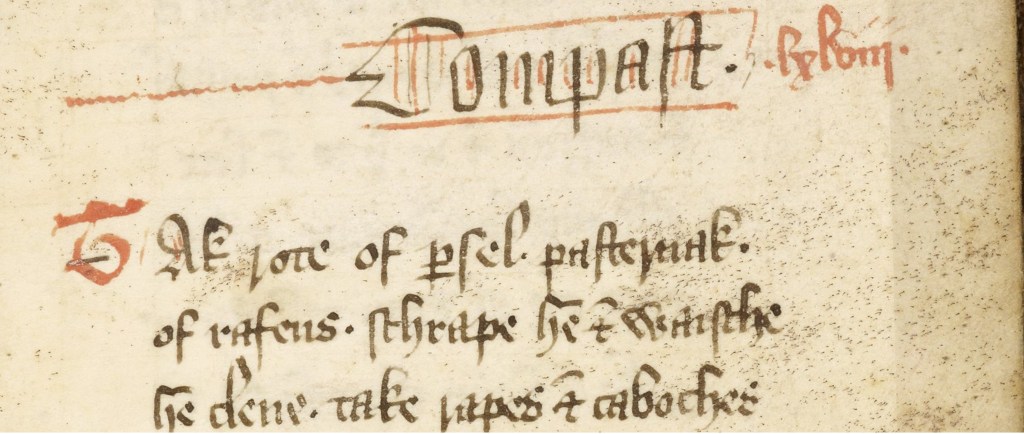 Compast. .lxlviii.
TAk rote of p̲sel. pasternak.
of rafens. schrape hē ⁊ waische
hē clene. take rapes ⁊ caboches